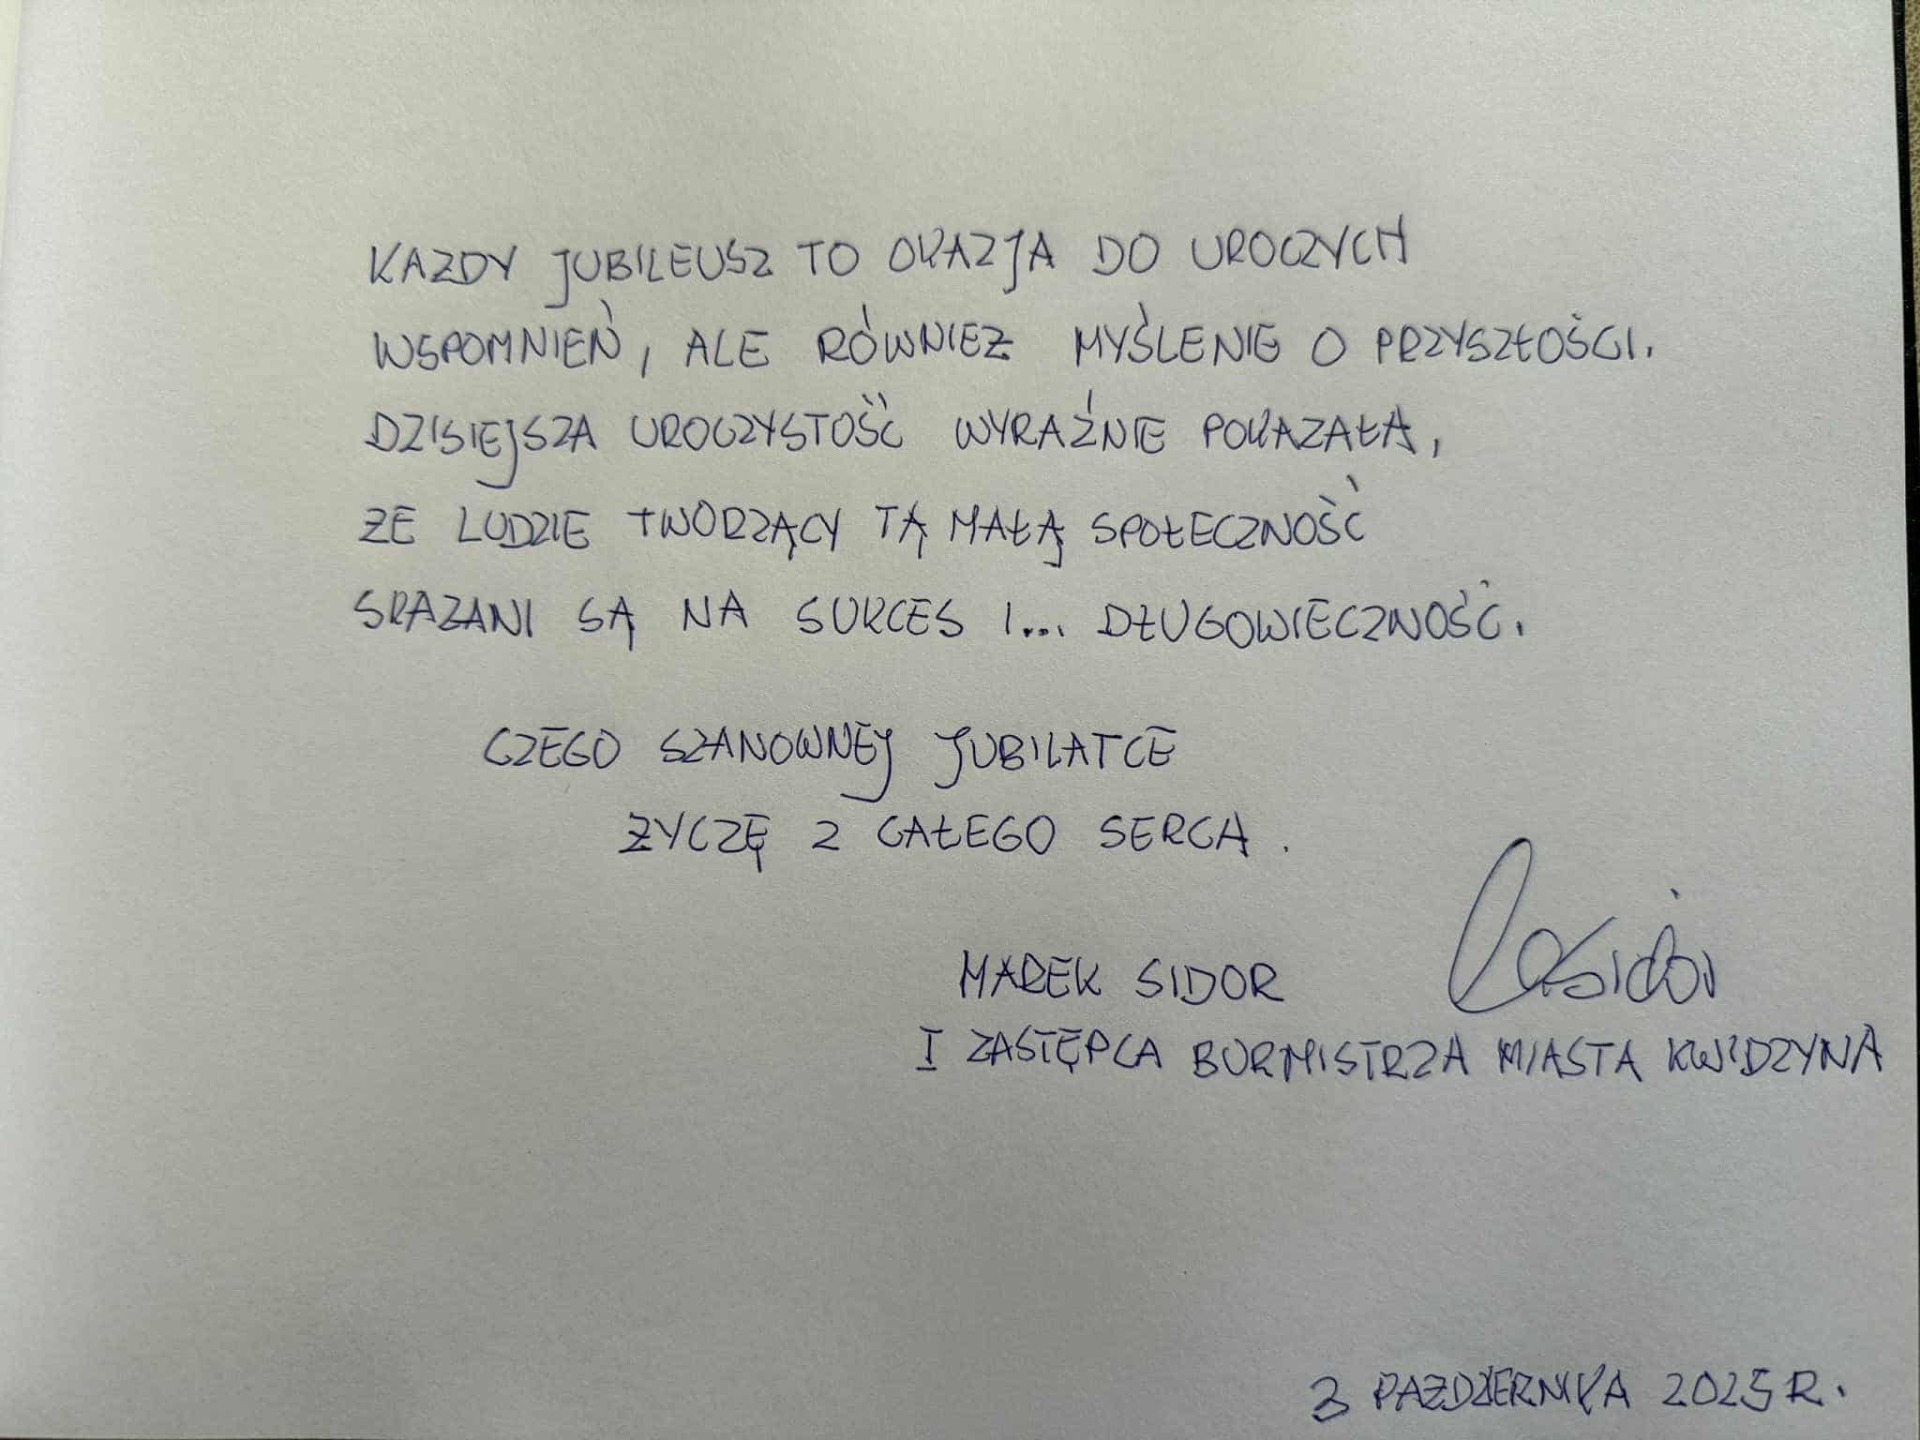 KAZDY JUBILEUSZ TO OKAZJA DO UROCZYCH
WSPOMNIEŃ, ALE RÓWNIEZ MYŚLENIE O PRZYSZŁOŚCI.
DZISIEJSZA UROCZYSTOŚĆ WYRAŹNIE POKAZAŁA,
ZE LUDZIE TWORZĄCY TĄ MAŁĄ SPOŁECZNOŚĆ
SKAZANI SĄ NA SUKCES I... DŁUGOWIECZNOŚĆ.
CZEGO SZANOWNEJ JUBILATCE
ZYCZĘ Z CAŁEGO SERCA.
MAREK SIDOR
I ZASTĘPCA BURMISTRZA MIASTA KWIDZYNA
3 PAZDZIERNIKA 2025 R.